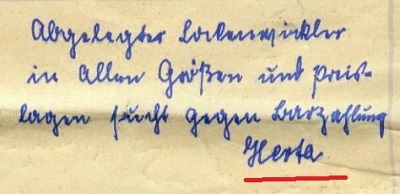 Abgelegter Lockenwickler
in Allen Größen und Preis-
lagen sucht gegen Barzahlung
Herta